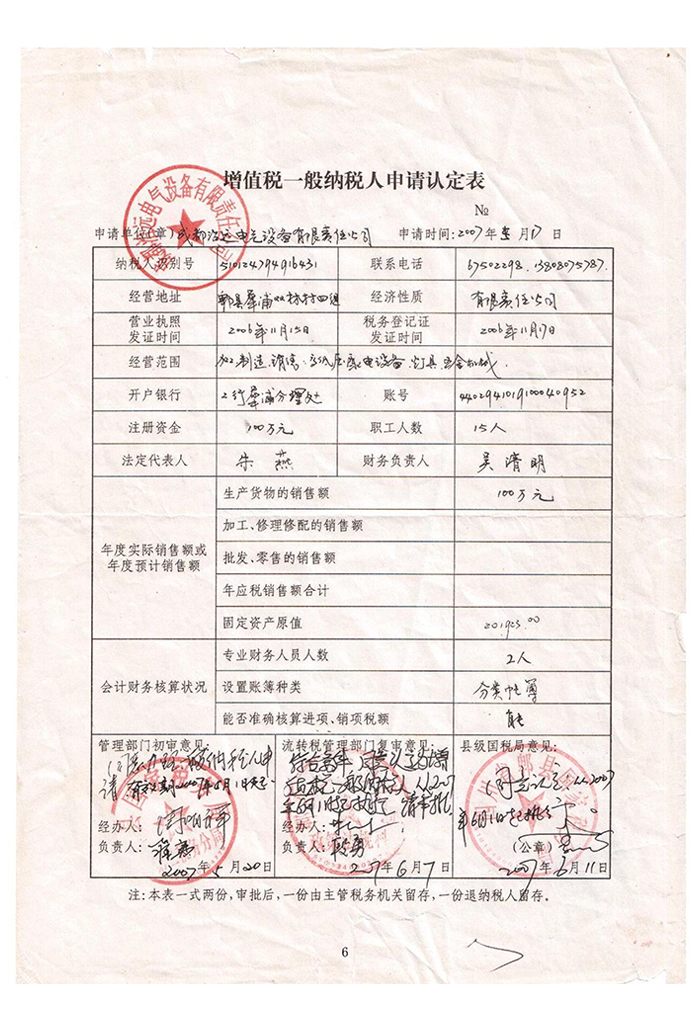 增值税一般纳税人申请认定表
№
申请单位(章) 成都 远电气设备有限责任公司 申请时间:2007年5月17日
纳税人识别号 510124794916431 联系电话 67502298. 13808075787.
经营地址 郫县犀浦 村四组 经济性质 有限责任公司
营业执照发证时间 2006年11月15日 税务登记证发证时间 2006年11月17日
经营范围 加工制造、销售:高低压配电设备、灯具、五金机械.
开户银行 工行犀浦分理处 账号 4402941019100040952
注册资金 100万元 职工人数 15人
法定代表人 朱燕 财务负责人 吴清明
年度实际销售额或年度预计销售额
生产货物的销售额 100万元
加工、修理修配的销售额
批发、零售的销售额
年应税销售额合计
固定资产原值
会计财务核算状况
专业财务人员人数 2人
设置账簿种类 分类帐簿
能否准确核算进项、销项税额 能
管理部门初审意见: 流转税管理部门复审意见: 县级国税局意见:
纳税人申
请 2007年6月1日
符合条件 同意认定为增
值税一般纳税人 从2007
年6月1日起执行 请审批
同意认定,从2007
年6月1日起执行
经办人: 经办人:
负责人: 负责人: (公章)
2007年5月20日 2007年6月7日 2007年6月11日
注:本表一式两份,审批后,一份由主管税务机关留存,一份退纳税人留存。
6